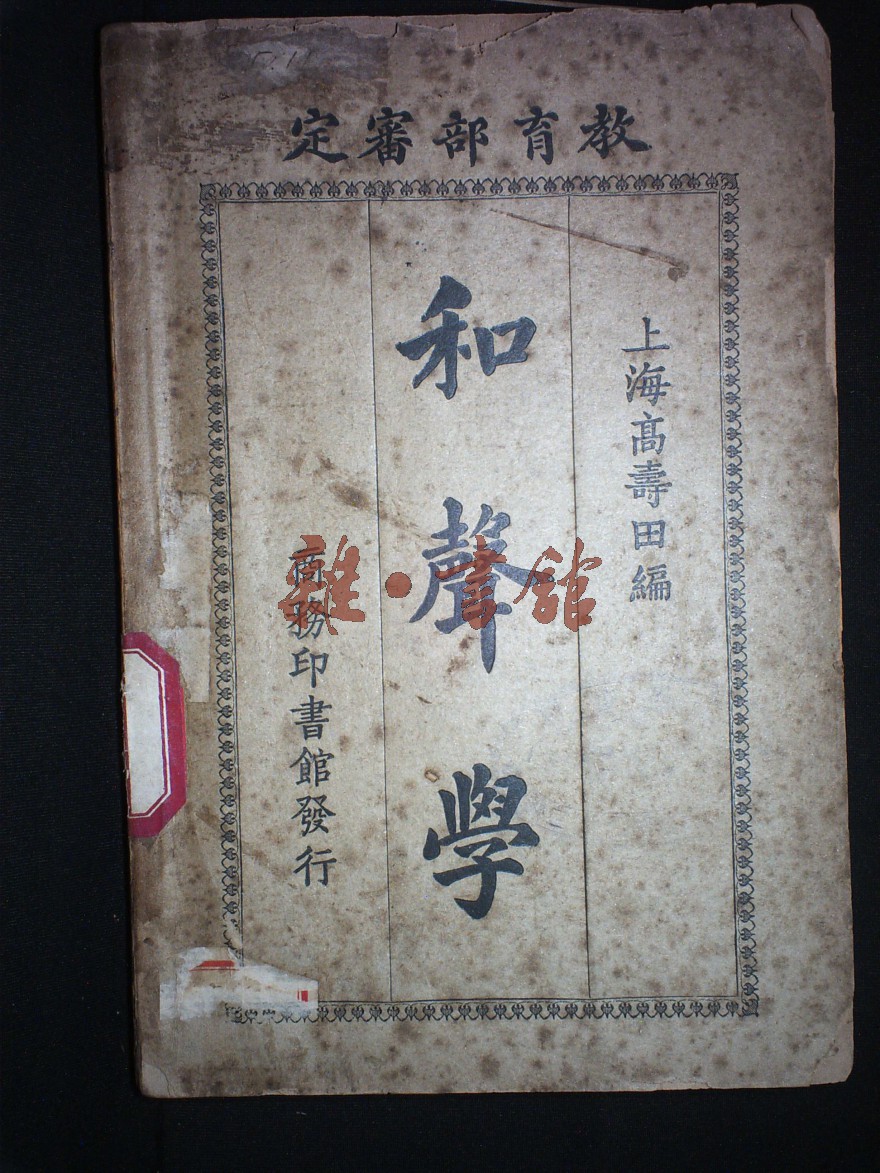 教育部審定
上海高壽田編
和聲學
商務印書館發行
雜·書館